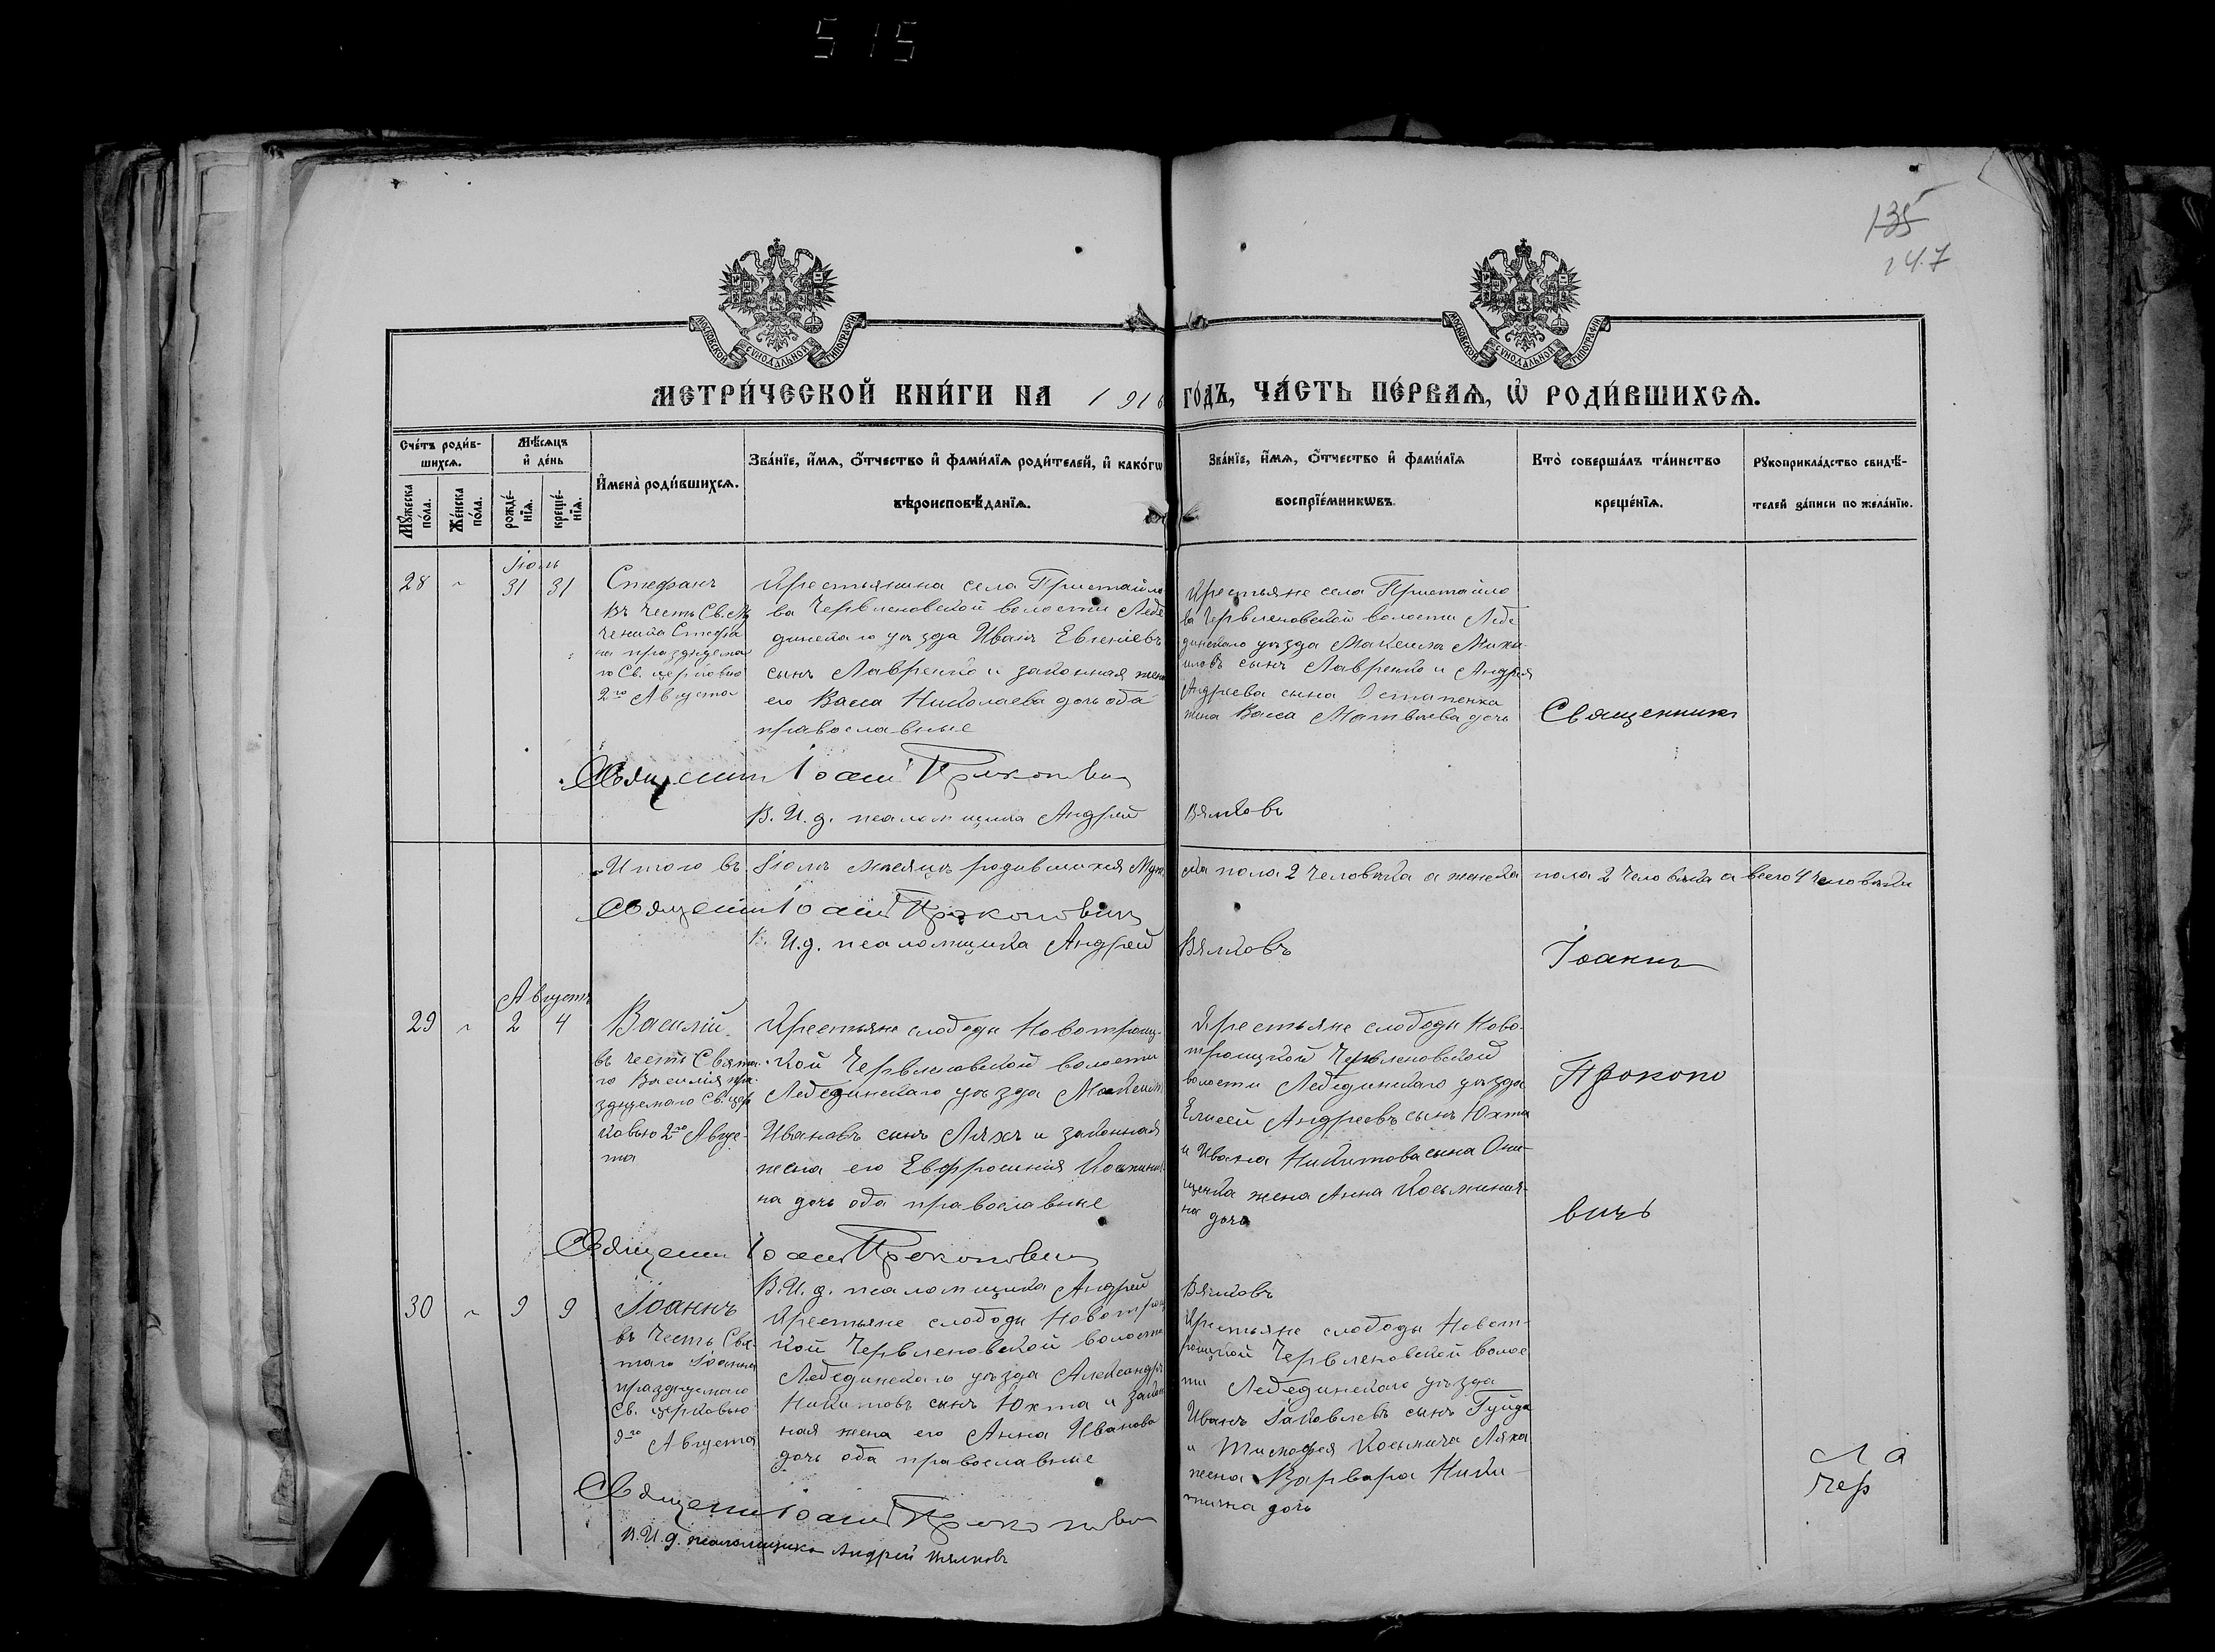 515
135
147
МОСКОВСКОЙ СѴНОДАЛЬНОЙ ТИПОГРАФІИ
МОСКОВСКОЙ СѴНОДАЛЬНОЙ ТИПОГРАФІИ
МЕТРИ́ЧЕСКОЙ КНИ́ГИ НА 1916 ГО́ДЪ, ЧА́СТЬ ПЕ́РВАѦ, Ѡ҆ РОДИ́ВШИХСѦ.
Сче́тъ роди́в-
шихсѧ.
Мꙋ́жеска по́ла.
Же́нска по́ла.
Мѣ́сѧцъ
и҆ де́нь
рожде́-
нїѧ.
креще́-
нїѧ.
И҆мена̀ роди́вшихсѧ.
Зва́нїе, и҆́мѧ, ѻ҆́тчество и҆ фами́лїѧ роди́телей, и҆ како́гѡ
вѣроисповѣ́данїѧ.
Зва́нїе, и҆́мѧ, ѻ҆́тчество и҆ фами́лїѧ
воспрїе́мникѡвъ.
Кто̀ соверша́лъ та́инство
креще́нїѧ.
Рꙋкоприкла́дство свидѣ́-
телей за́писи по жела́нїю.
Іюль
28 " 31 31
Стефанъ
въ честь Св. Му
ченика Стефа
на празднуема
го Св. церковью
2го Августа
Крестьянина села Пристайло
ва Червленовской волости Лебе
динскаго уѣзда Иванъ Евгеніевъ
сынъ Лавренко и законная жена
его Васса Николаева дочь оба
православные
Крестьяне села Пристайло
ва Червленовской волости Лебе
динскаго уѣзда Максимъ Миха
иловъ сынъ Лавренко и Андрея
Андреева сына Остапенка
жена Васса Матвѣева дочь
Священникъ
Священн Іоаннъ Прокопович
В. И. д. псаломщика Андрей Вялковъ
Итого въ Іюлѣ мѣсяцѣ родившихся Муже
ска пола 2 человѣка а женска пола 2 человѣка а всего 4 человѣка
Священн Іоаннъ Прокопович
В. И. д. псаломщика Андрей Вялковъ
Іоаннъ
Августъ
29 " 2 4
Василій
въ честь Свята-
го Василія пра
зднуемаго Св. цер
ковью 2го Авгус-
та
Крестьяне слободы Новотроиц-
кой Червленовской волости
Лебединскаго уѣзда Максимъ
Ивановъ сынъ Ляхъ и законная
жена его Евфросинія Косьминич
на дочь оба православные
Крестьяне слободы Ново-
троицкой Червленовской
волости Лебединскаго уѣзда
Елисей Андреевъ сынъ Юхта
и Ивана Никитова сына Они-
щенка жена Анна Косьминич-
на дочь
Прокопо
вичъ
Священн Іоаннъ Прокопович
В. И. д. псаломщика Андрей Вялковъ
30 " 9 9
Іоаннъ
въ честь Свя-
таго Іоанна
празднуемаго
Св. церковью
9го Августа
Крестьяне слободы Новотроиц
кой Червленовской волости
Лебединскаго уѣзда Александръ
Никитовъ сынъ Юхта и закон
ная жена его Анна Иванова
дочь оба православные
Крестьяне слободы Новот-
роицкой Червленовской волос
ти Лебединскаго уѣзда
Иванъ Іаковлевъ сынъ Гуйда
и Тимофея Косьмича Ляха
жена Варвара Ники-
тична дочь
Священн Іоаннъ Прокопович
В. И. д. псаломщика Андрей Вялковъ
чер